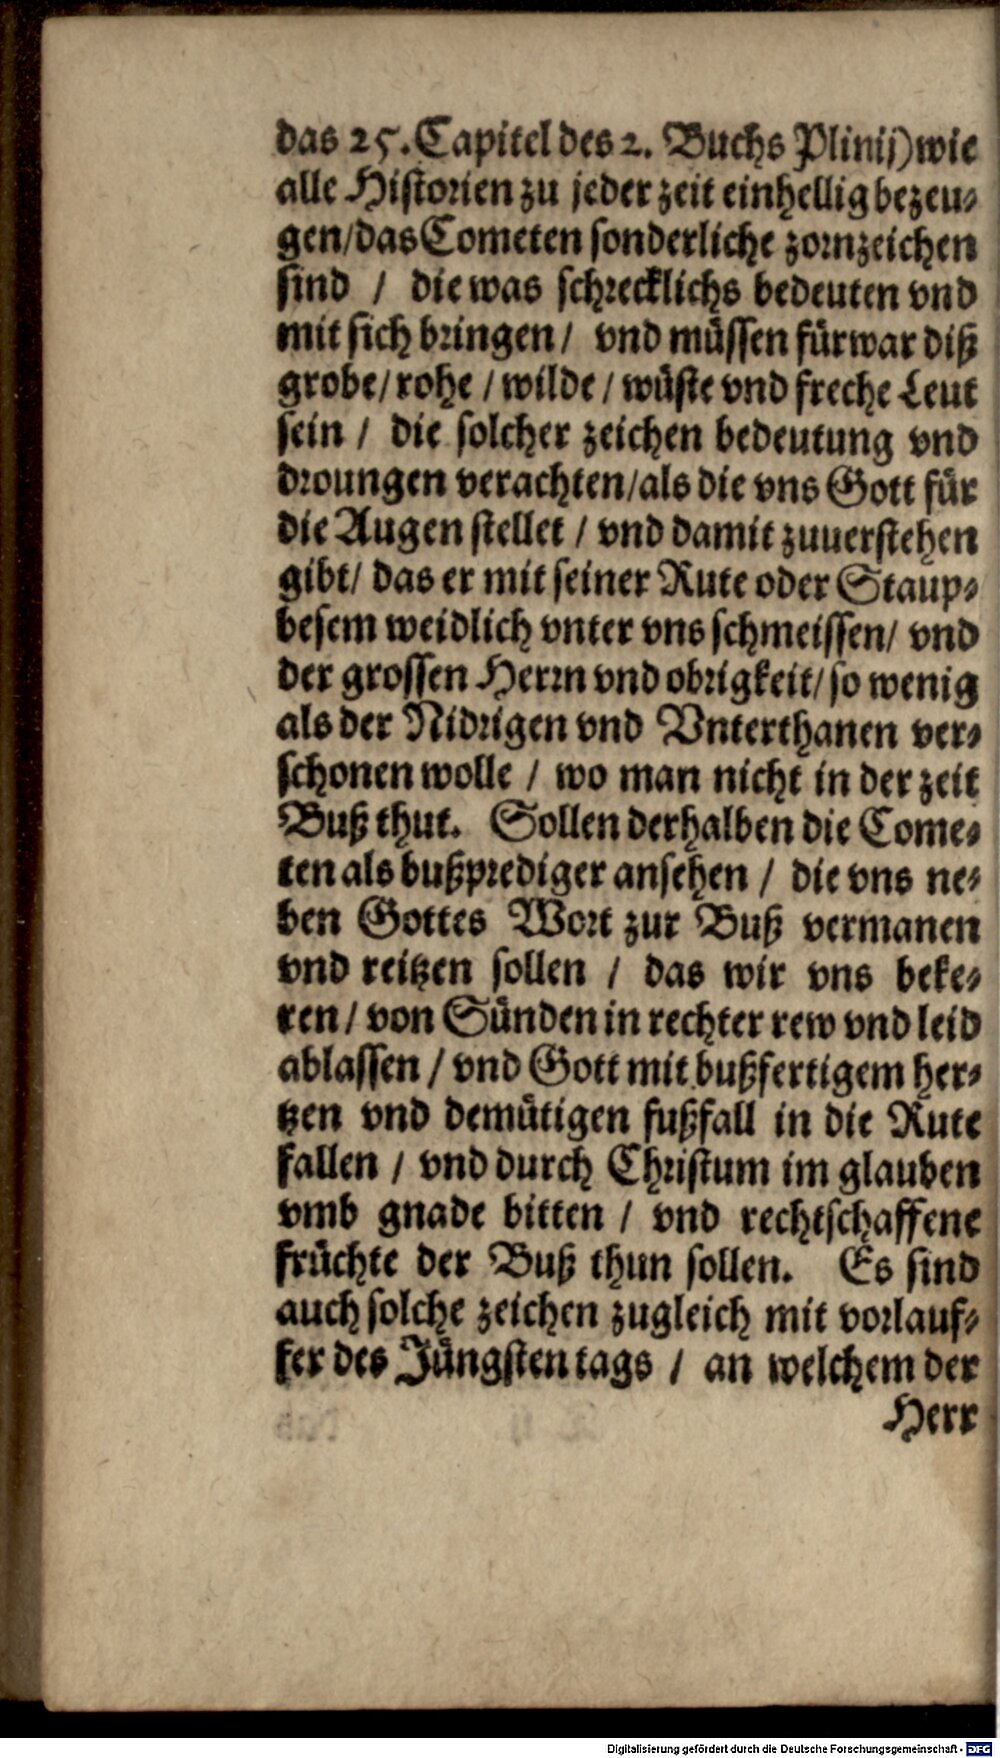 das 25. Capitel des 2. Buchs Plinij) wie
alle Historien zu jeder zeit einhellig bezeu-
gen/das Cometen sonderliche zornzeichen
sind / die was schrecklichs bedeuten vnd
mit sich bringen/ vnd müssen fürwar diß
grobe/rohe /wilde/wüste vnd freche Leut
sein / die solcher zeichen bedeutung vnd
droungen verachten/als die vns Gott für
die Augen stellet / vnd damit zuuerstehen
gibt/ das er mit seiner Rute oder Staup-
besem weidlich vnter vns schmeissen/ vnd
der grossen Herrn vnd obrigkeit/so wenig
als der Nidrigen vnd Vnterthanen ver-
schonen wolle / wo man nicht in der zeit
Buß thut. Sollen derhalben die Come-
ten als bußprediger ansehen / die vns ne-
ben Gottes Wort zur Buß vermanen
vnd reitzen sollen / das wir vns beke-
ren/ von Sünden in rechter rew vnd leid
ablassen / vnd Gott mit bußfertigem her-
tzen vnd demütigen fußfall in die Rute
fallen / vnd durch Christum im glauben
vmb gnade bitten / vnd rechtschaffene
früchte der Buß thun sollen. Es sind
auch solche zeichen zugleich mit vorlauf-
fer des Jüngsten tags / an welchem der
Herr
Digitalisierung gefördert durch die Deutsche Forschungsgemeinschaft - DFG